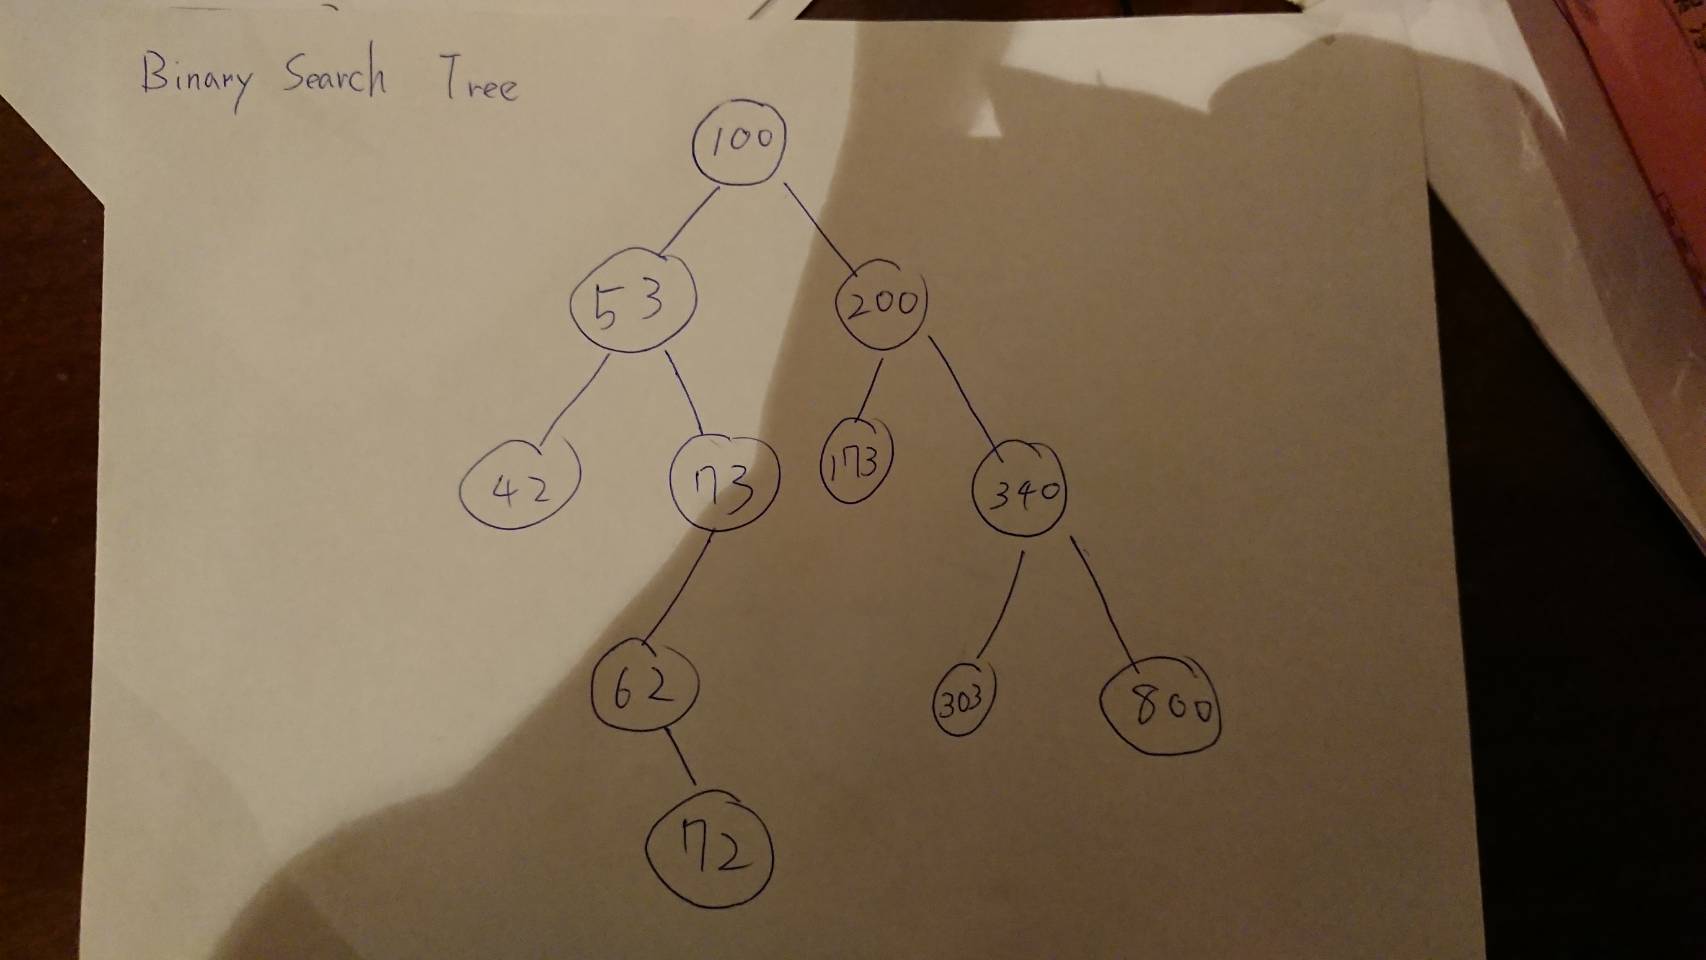 Binary Search Tree
100
53 200
42 73 173 340
62 303 800
72